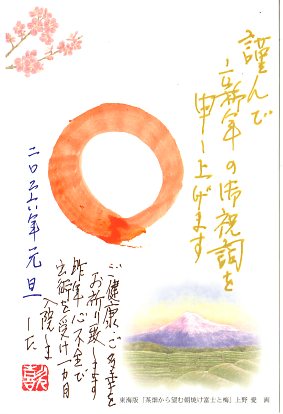 謹んで
新年の御祝詞を
申し上げます
ご健康ご多幸を
お祈り致します
昨年心不全で
手術を受け一カ月
入院しま
した
二〇二六年 元旦
東海版「茶畑から望む朝焼け富士と梅」上野 愛 画